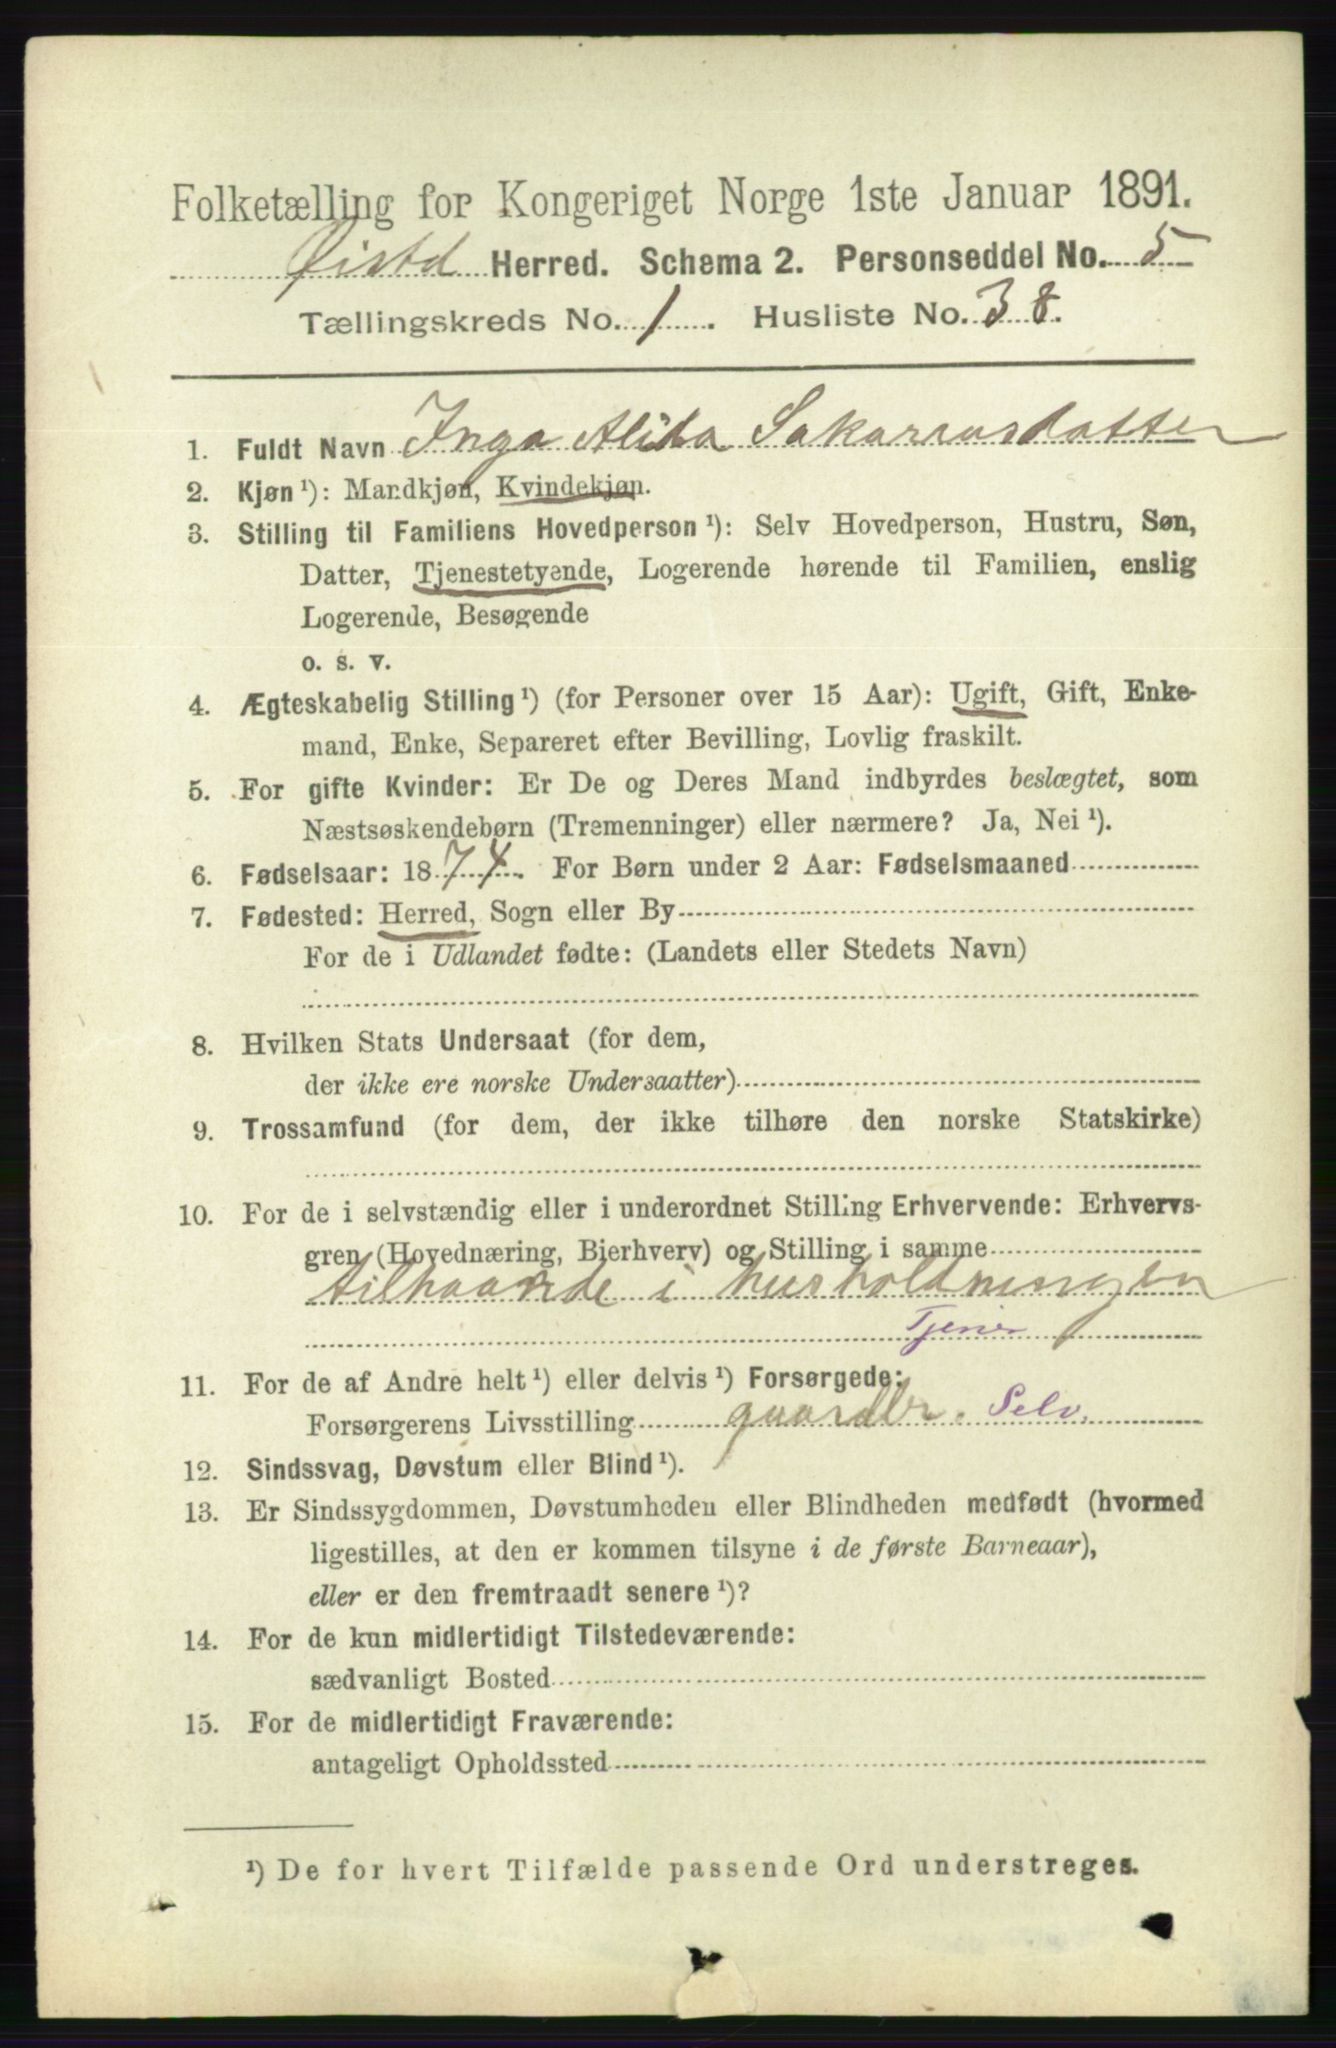 Folketælling for Kongeriget Norge 1ste Januar 1891.
Øistd Herred. Schema 2. Personseddel No. 5
Tællingskreds No. 1. Husliste No. 38.
1. Fuldt Navn Inga Alida Sakariasdatter
2. Kjøn ¹): Mandkjøn, Kvindekjøn.
3. Stilling til Familiens Hovedperson ¹): Selv Hovedperson, Hustru, Søn,
Datter, Tjenestetyende, Logerende hørende til Familien, enslig
Logerende, Besøgende
o. s. v.
4. Ægteskabelig Stilling ¹) (for Personer over 15 Aar): Ugift, Gift, Enke-
mand, Enke, Separeret efter Bevilling, Lovlig fraskilt.
5. For gifte Kvinder: Er De og Deres Mand indbyrdes beslægtet, som
Næstsøskendebørn (Tremenninger) eller nærmere? Ja, Nei ¹).
6. Fødselsaar: 1874. For Børn under 2 Aar: Fødselsmaaned
7. Fødested: Herred, Sogn eller By
For de i Udlandet fødte: (Landets eller Stedets Navn)
8. Hvilken Stats Undersaat (for dem,
der ikke ere norske Undersaatter)
9. Trossamfund (for dem, der ikke tilhøre den norske Statskirke)
10. For de i selvstændig eller i underordnet Stilling Erhvervende: Erhvervs-
gren (Hovednæring, Bierhverv) og Stilling i samme
tilhaande i husholdningen
Tjener
11. For de af Andre helt ¹) eller delvis ¹) Forsørgede:
Forsørgerens Livsstilling gaardbr. Selv.
12. Sindssvag, Døvstum eller Blind ¹).
13. Er Sindssygdommen, Døvstumheden eller Blindheden medfødt (hvormed
ligestilles, at den er kommen tilsyne i de første Barneaar),
eller er den fremtraadt senere ¹)?
14. For de kun midlertidigt Tilstedeværende:
sædvanligt Bosted
15. For de midlertidigt Fraværende:
antageligt Opholdssted
¹) De for hvert Tilfælde passende Ord understreges.